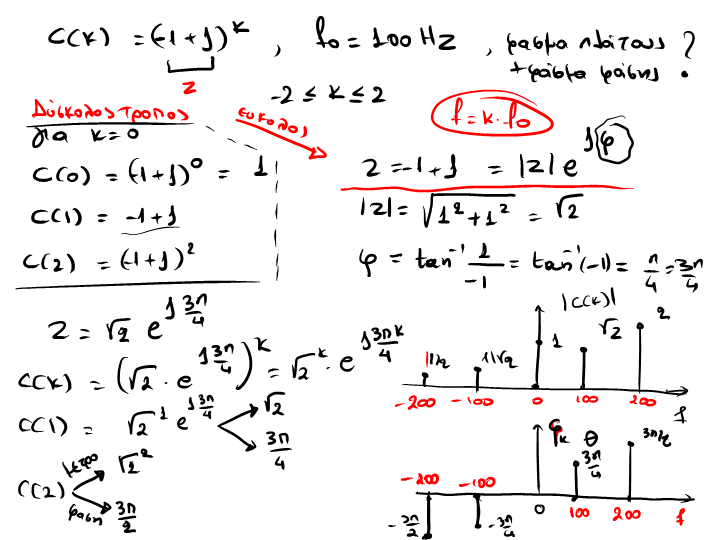 C(k) = (-1+j)^k , f₀ = 100 Hz , φασμα πλάτους ?
z
+ φάσμα φάσης
-2 ≤ k ≤ 2
Δύσκολος τροπος
ευκολος
f = k·f₀
για k=0
C(0) = (-1+j)^0 = 1
C(1) = -1+j
C(2) = (-1+j)^2
z = -1+j = |z| e^{jφ}
|z| = √(1²+1²) = √2
φ = tan⁻¹ 1/-1 = tan⁻¹(-1) = π/4 = 3π/4
z = √2 e^{j3π/4}
C(k) = (√2 · e^{j3π/4})^k = √2^k · e^{j3πk/4}
C(1) = √2^1 e^{j3π/4}
√2
3π/4
C(2)
μετρο
√2^2
φαση
3π/2
|C(k)|
1/2 1/√2 1 √2 2
-200 -100 0 100 200 f
φk θ
3π/4 3π/2
-200 -100
0 100 200 f
-3π/2 -3π/4